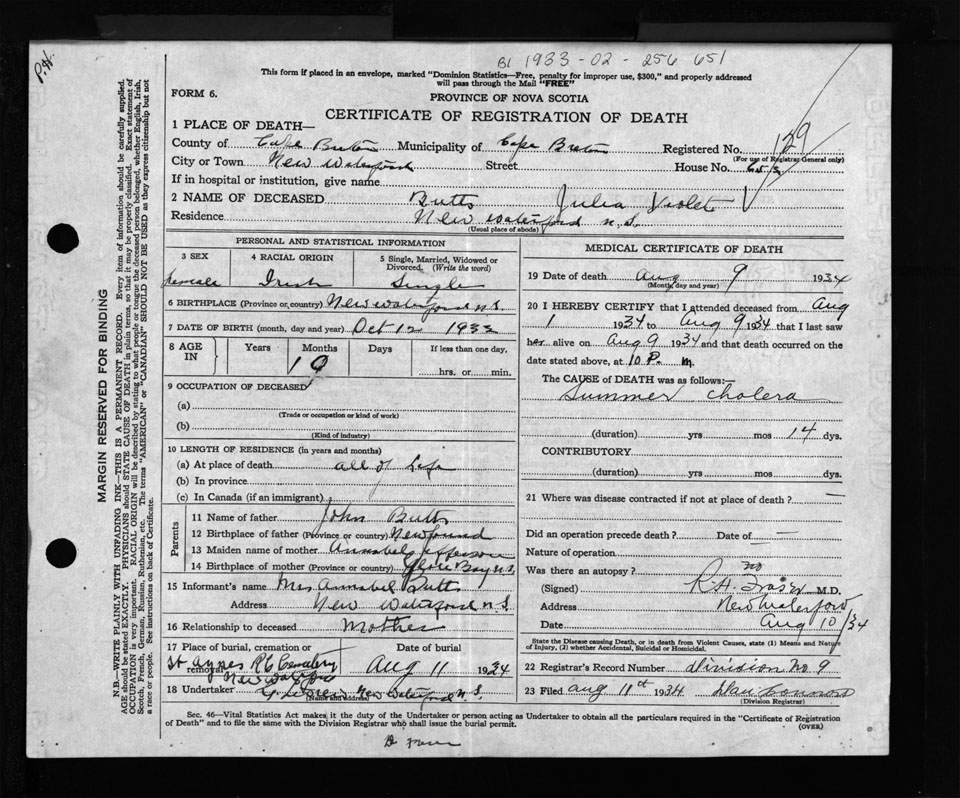 P.H.
B1 1933-02-256 651
This form if placed in an envelope, marked "Dominion Statistics—Free, penalty for improper use, $300," and properly addressed
will pass through the Mail "FREE"
FORM 6.
PROVINCE OF NOVA SCOTIA
CERTIFICATE OF REGISTRATION OF DEATH
1 PLACE OF DEATH—
County of Cape Breton Municipality of Cape Breton Registered No. 129
(For use of Registrar General only)
City or Town New Waterford Street House No.
If in hospital or institution, give name
2 NAME OF DECEASED Butts Julia Violet
Residence New Waterford N.S.
(Usual place of abode)
PERSONAL AND STATISTICAL INFORMATION
3 SEX 4 RACIAL ORIGIN 5 Single, Married, Widowed or
Divorced. (Write the word)
Female Irish Single
6 BIRTHPLACE (Province or country) New Waterford N.S.
7 DATE OF BIRTH (month, day and year) Oct 12 1933
8 AGE IN Years Months Days If less than one day,
10 hrs. or min.
9 OCCUPATION OF DECEASED
(a)
(Trade or occupation or kind of work)
(b)
(Kind of industry)
10 LENGTH OF RESIDENCE (in years and months)
(a) At place of death all of Life
(b) In province
(c) In Canada (if an immigrant)
Parents
11 Name of father John Butts
12 Birthplace of father (Province or country) Newfound
13 Maiden name of mother Annabel Jefferson
14 Birthplace of mother (Province or country) Glace Bay N.S.
15 Informant's name Mrs Annabel Butts
Address New Waterford N.S.
16 Relationship to deceased Mother
17 Place of burial, cremation or Date of burial
removal St Agnes R C Cemetery Aug 11 1934
New Waterford
18 Undertaker New Waterford N.S.
(Name and address)
MEDICAL CERTIFICATE OF DEATH
19 Date of death Aug 9 1934
(Month, day and year)
20 I HEREBY CERTIFY that I attended deceased from Aug
1 1934 to Aug 9 1934 that I last saw
her alive on Aug 9 1934 and that death occurred on the
date stated above, at 10 P. m.
The CAUSE of DEATH was as follows:—
Summer Cholera
(duration) yrs mos 14 dys.
CONTRIBUTORY
(duration) yrs mos dys.
21 Where was disease contracted if not at place of death? —
Did an operation precede death? — Date of —
Nature of operation
Was there an autopsy? no
(Signed) M.D.
Address New Waterford
Date Aug 10/34
State the Disease causing Death, or in death from Violent Causes, state (1) Means and Nature
of Injury, (2) whether Accidental, Suicidal or Homicidal.
22 Registrar's Record Number division No 9
23 Filed Aug 11th 1934 Dan Connors
(Division Registrar)
Sec. 46—Vital Statistics Act makes it the duty of the Undertaker or person acting as Undertaker to obtain all the particulars required in the "Certificate of Registration
of Death" and to file the same with the Division Registrar who shall issue the burial permit.
(OVER)
MARGIN RESERVED FOR BINDING
N.B.—WRITE PLAINLY WITH UNFADING INK—THIS IS A PERMANENT RECORD. Every item of information should be carefully supplied.
AGE should be stated EXACTLY. PHYSICIANS should STATE CAUSE OF DEATH in plain terms, so that it may be properly classified. Exact statement of
OCCUPATION is very important. RACIAL ORIGIN will be described by stating to what people or tongue the deceased person belonged, whether English, Irish,
Scotch, French, German, Russian, Ruthenian, etc. The terms "AMERICAN" or "CANADIAN" SHOULD NOT BE USED as they express citizenship but not
a race or people. See instructions on back of Certificate.